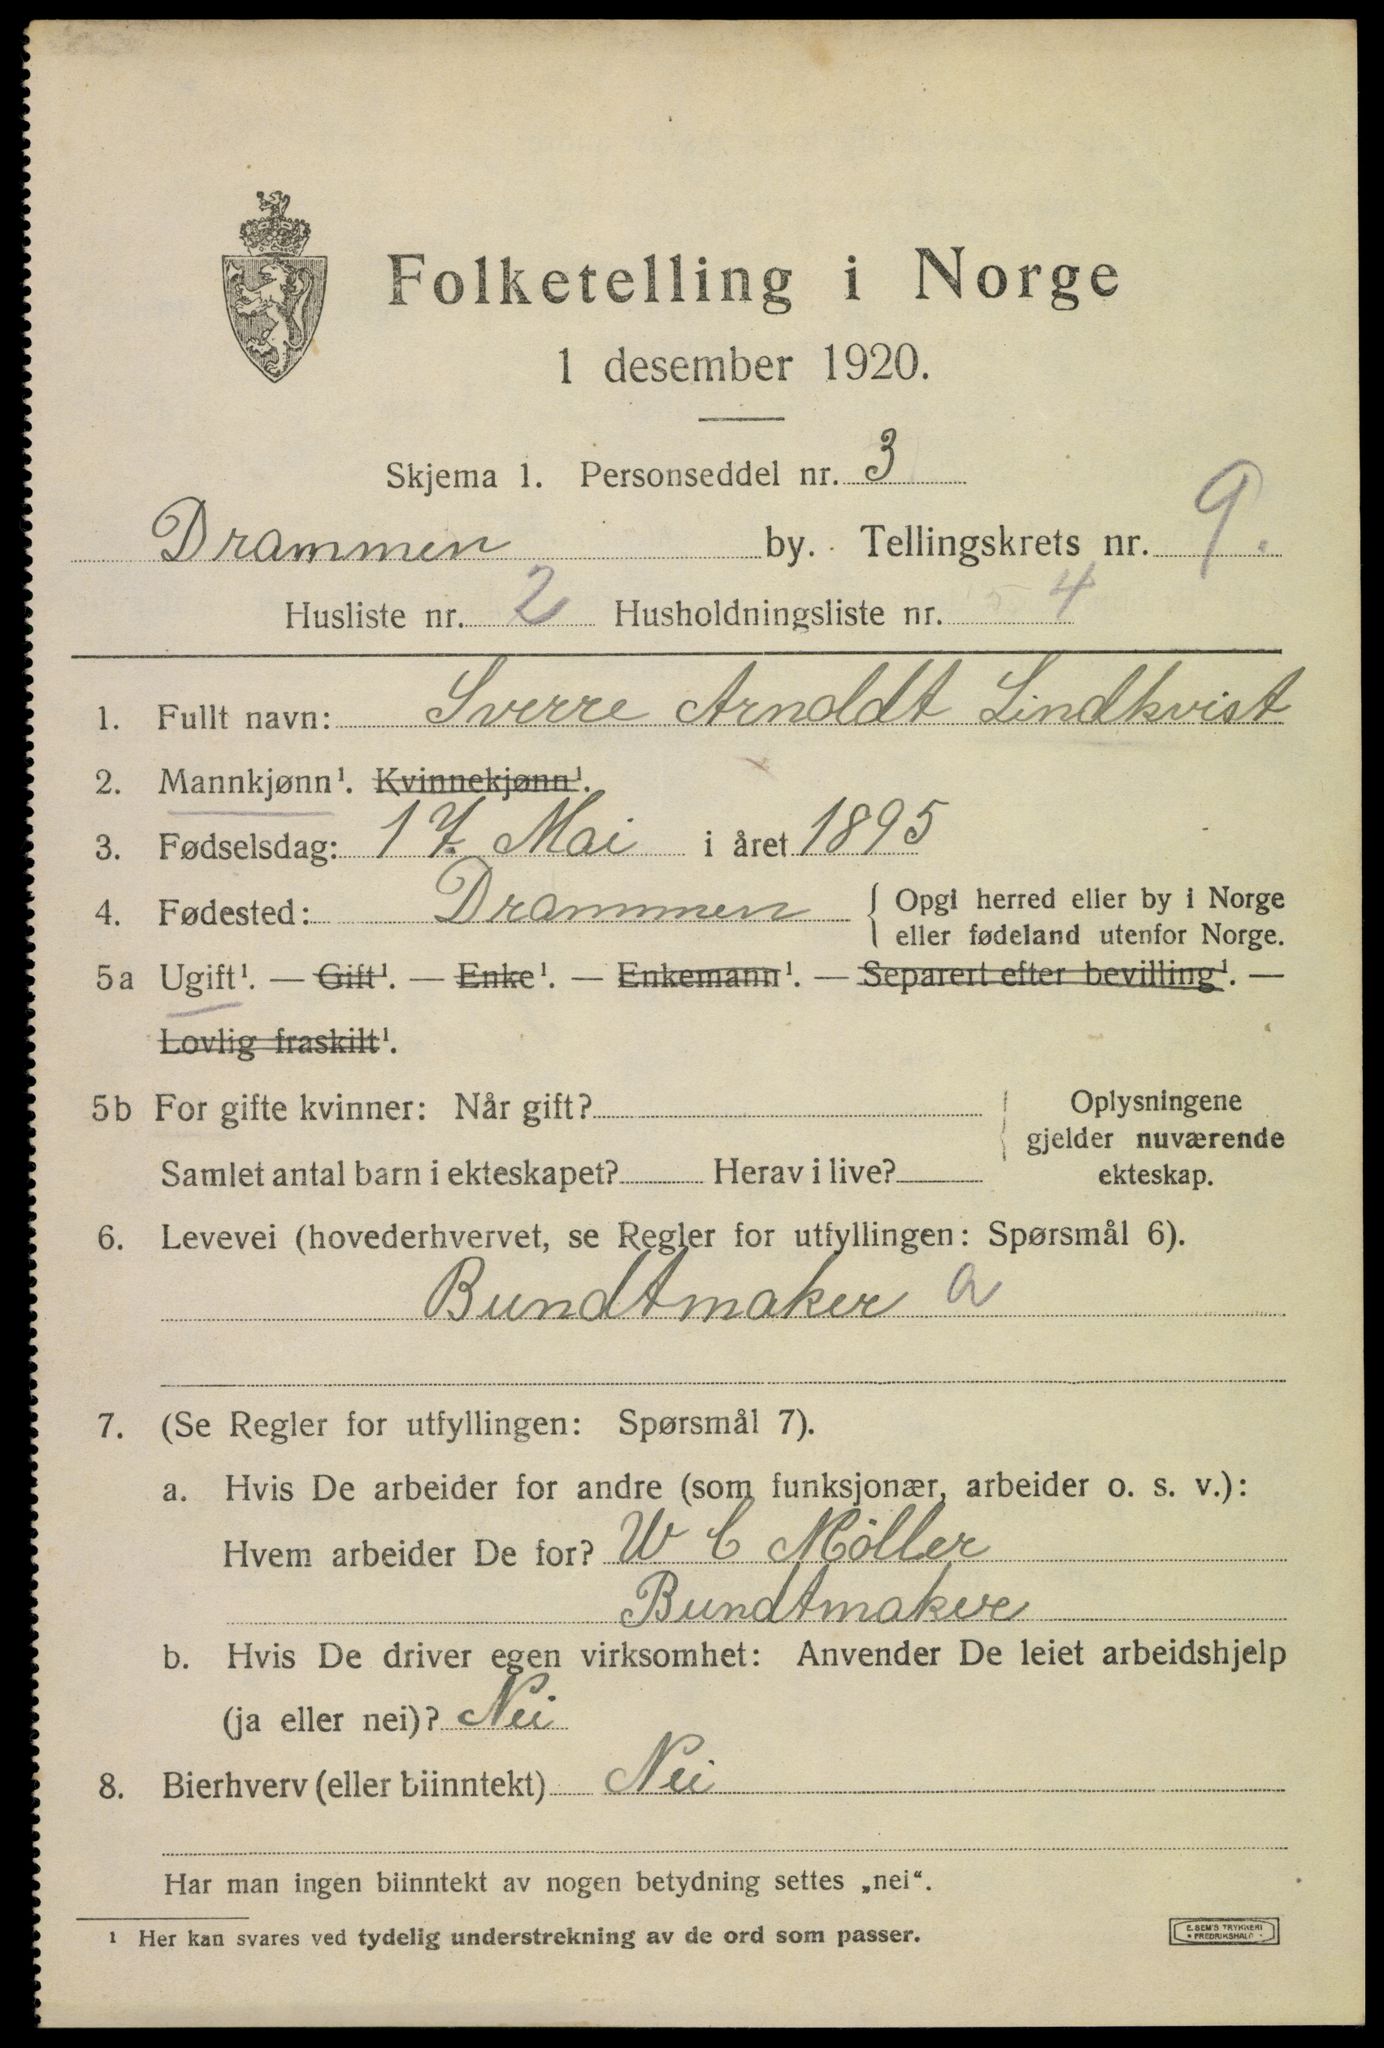 Folketelling i Norge
1 desember 1920.
Skjema 1. Personseddel nr. 3
Drammen by. Tellingskrets nr. 9.
Husliste nr. 2 Husholdningsliste nr. 4
1. Fullt navn: Sverre Arnoldt Lindkvist
2. Mannkjønn¹. Kvinnekjønn¹.
3. Fødselsdag: 17. Mai i året 1895
4. Fødested: Drammen { Opgi herred eller by i Norge
eller fødeland utenfor Norge.
5a Ugift¹. — Gift¹. — Enke¹. — Enkemann¹. — Separert efter bevilling¹. —
Lovlig fraskilt¹.
5b For gifte kvinner: Når gift?
Samlet antal barn i ekteskapet? Herav i live?
{ Oplysningene
gjelder nuværende
ekteskap.
6. Levevei (hovederhvervet, se Regler for utfyllingen: Spørsmål 6).
Bundtmaker a
7. (Se Regler for utfyllingen: Spørsmål 7).
a. Hvis De arbeider for andre (som funksjonær, arbeider o. s. v.):
Hvem arbeider De for? W C Møller
Bundtmaker
b. Hvis De driver egen virksomhet: Anvender De leiet arbeidshjelp
(ja eller nei)? Nei
8. Bierhverv (eller biinntekt) Nei
Har man ingen biinntekt av nogen betydning settes „nei“.
¹ Her kan svares ved tydelig understrekning av de ord som passer.
E. SEM'S TRYKKERI
FREDRIKSHALD